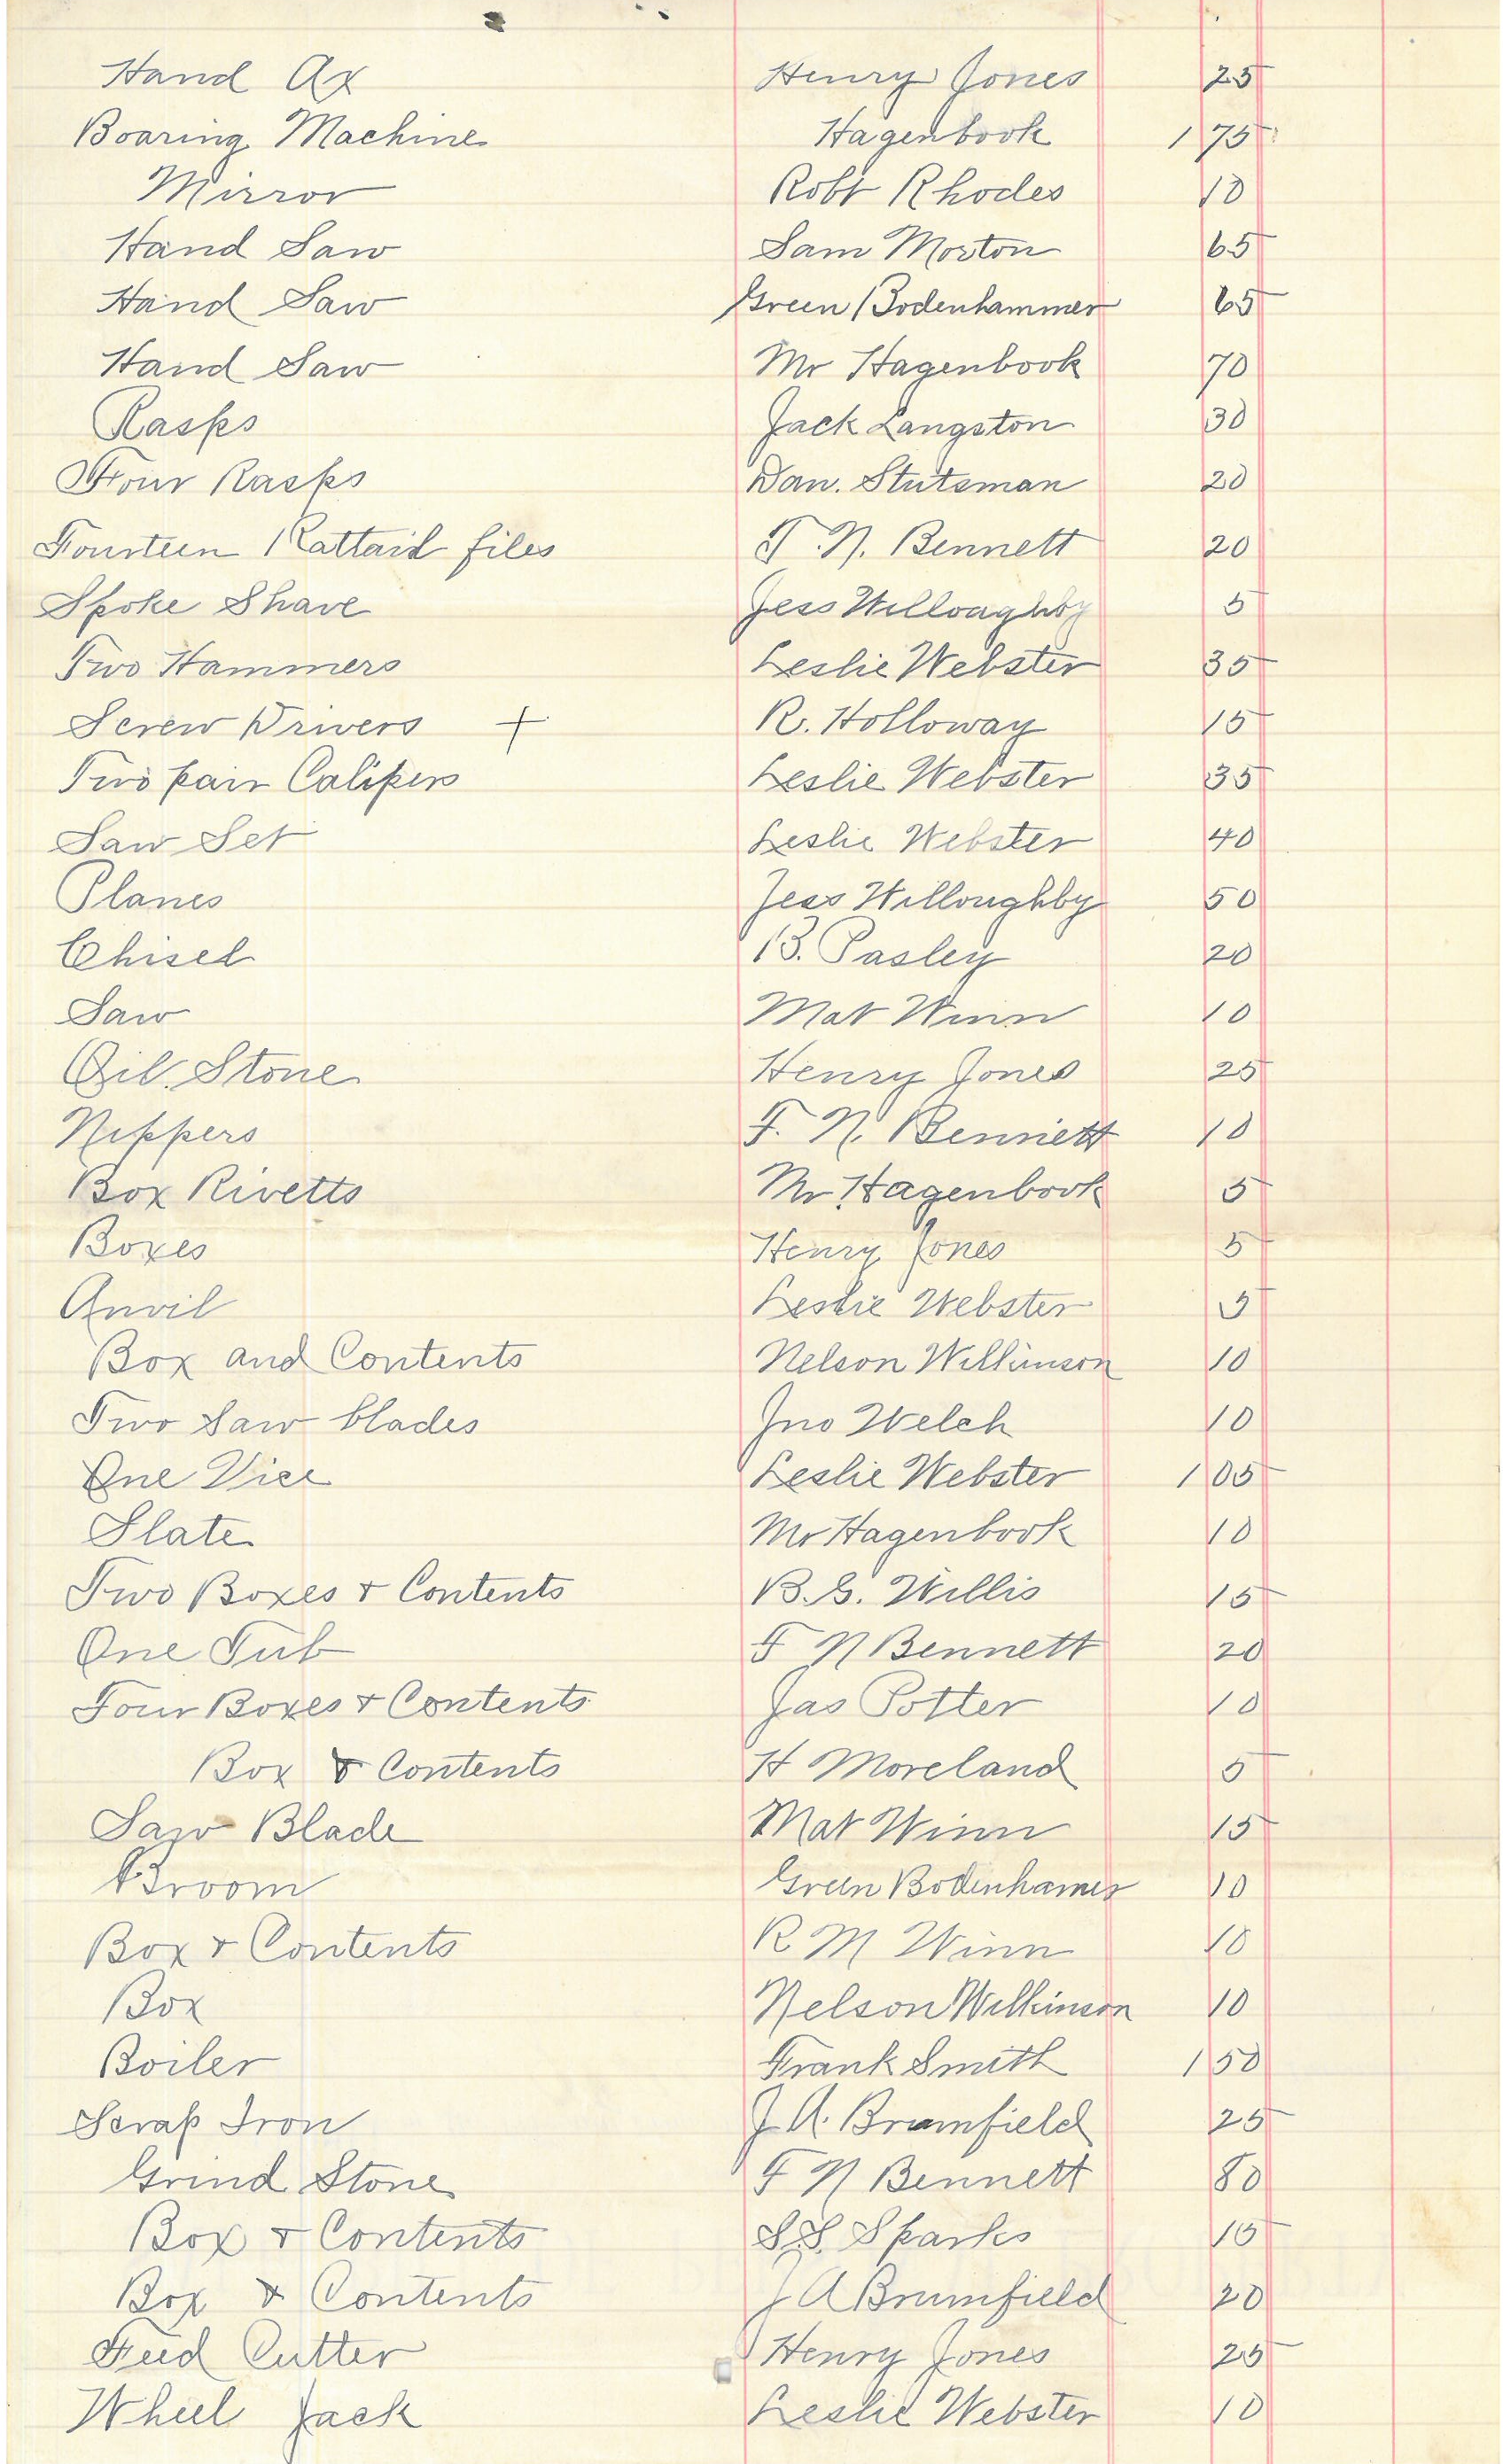 Hand Ax Henry Jones 25
Boaring Machine Hagenbook 1 75
Mirror Robt Rhodes 10
Hand Saw Sam Morton 65
Hand Saw Green Bodenhammer 65
Hand Saw Mr Hagenbook 70
Rasps Jack Langston 30
Four Rasps Dan. Stutsman 20
Fourteen Rattail files F. N. Bennett 20
Spoke Shave Jess Willoughby 5
Two Hammers Leslie Webster 35
Screw Drivers + R. Holloway 15
Two pair Calipers Leslie Webster 35
Saw Set Leslie Webster 40
Planes Jess Willoughby 50
Chisel B. Pasley 20
Saw Mat Winn 10
Oil Stone Henry Jones 25
Nippers F. N. Bennett 10
Box Rivetts Mr. Hagenbook 5
Boxes Henry Jones 5
Anvil Leslie Webster 5
Box and Contents Nelson Wilkinson 10
Two Saw blades Jno Welch 10
One Vice Leslie Webster 1 05
Slate Mr Hagenbook 10
Two Boxes & Contents B. G. Willis 15
One Tub F N Bennett 20
Four Boxes & Contents Jas Potter 10
Box & Contents H Moreland 5
Saw Blade Mat Winn 15
Broom Green Bodenhamer 10
Box & Contents R M Winn 10
Box Nelson Wilkinson 10
Boiler Frank Smith 1 50
Scrap Iron J. A. Brumfield 25
Grind Stone F N Bennett 80
Box & Contents S. S. Sparks 15
Box & Contents J A Brumfield 20
Feed Cutter Henry Jones 25
Wheel Jack Leslie Webster 10